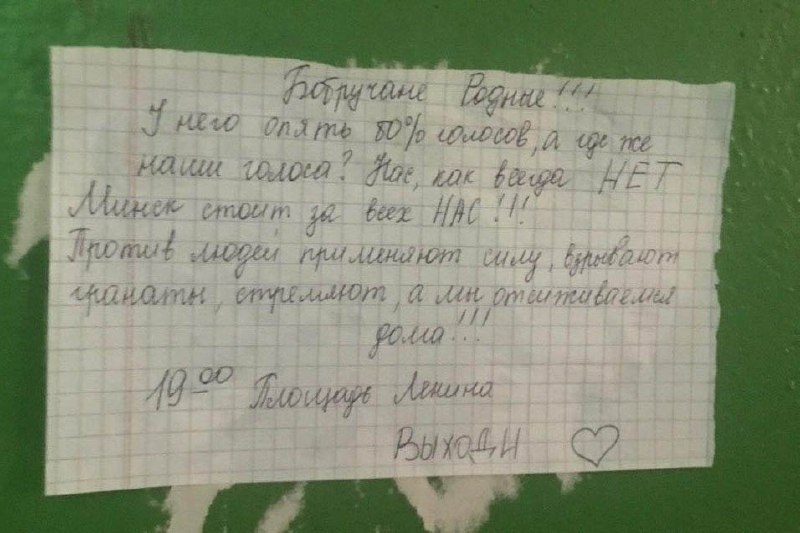 Бобручане Родные!!!
У него опять 80% голосов, а где же
наши голоса? Нас, как всегда НЕТ
Минск стоит за всех НАС!!!
Против людей применяют силу, взрывают
гранаты, стреляют, а мы отсиживаемся
дома!!!
19 00 Площадь Ленина
ВЫХОДИ ♡